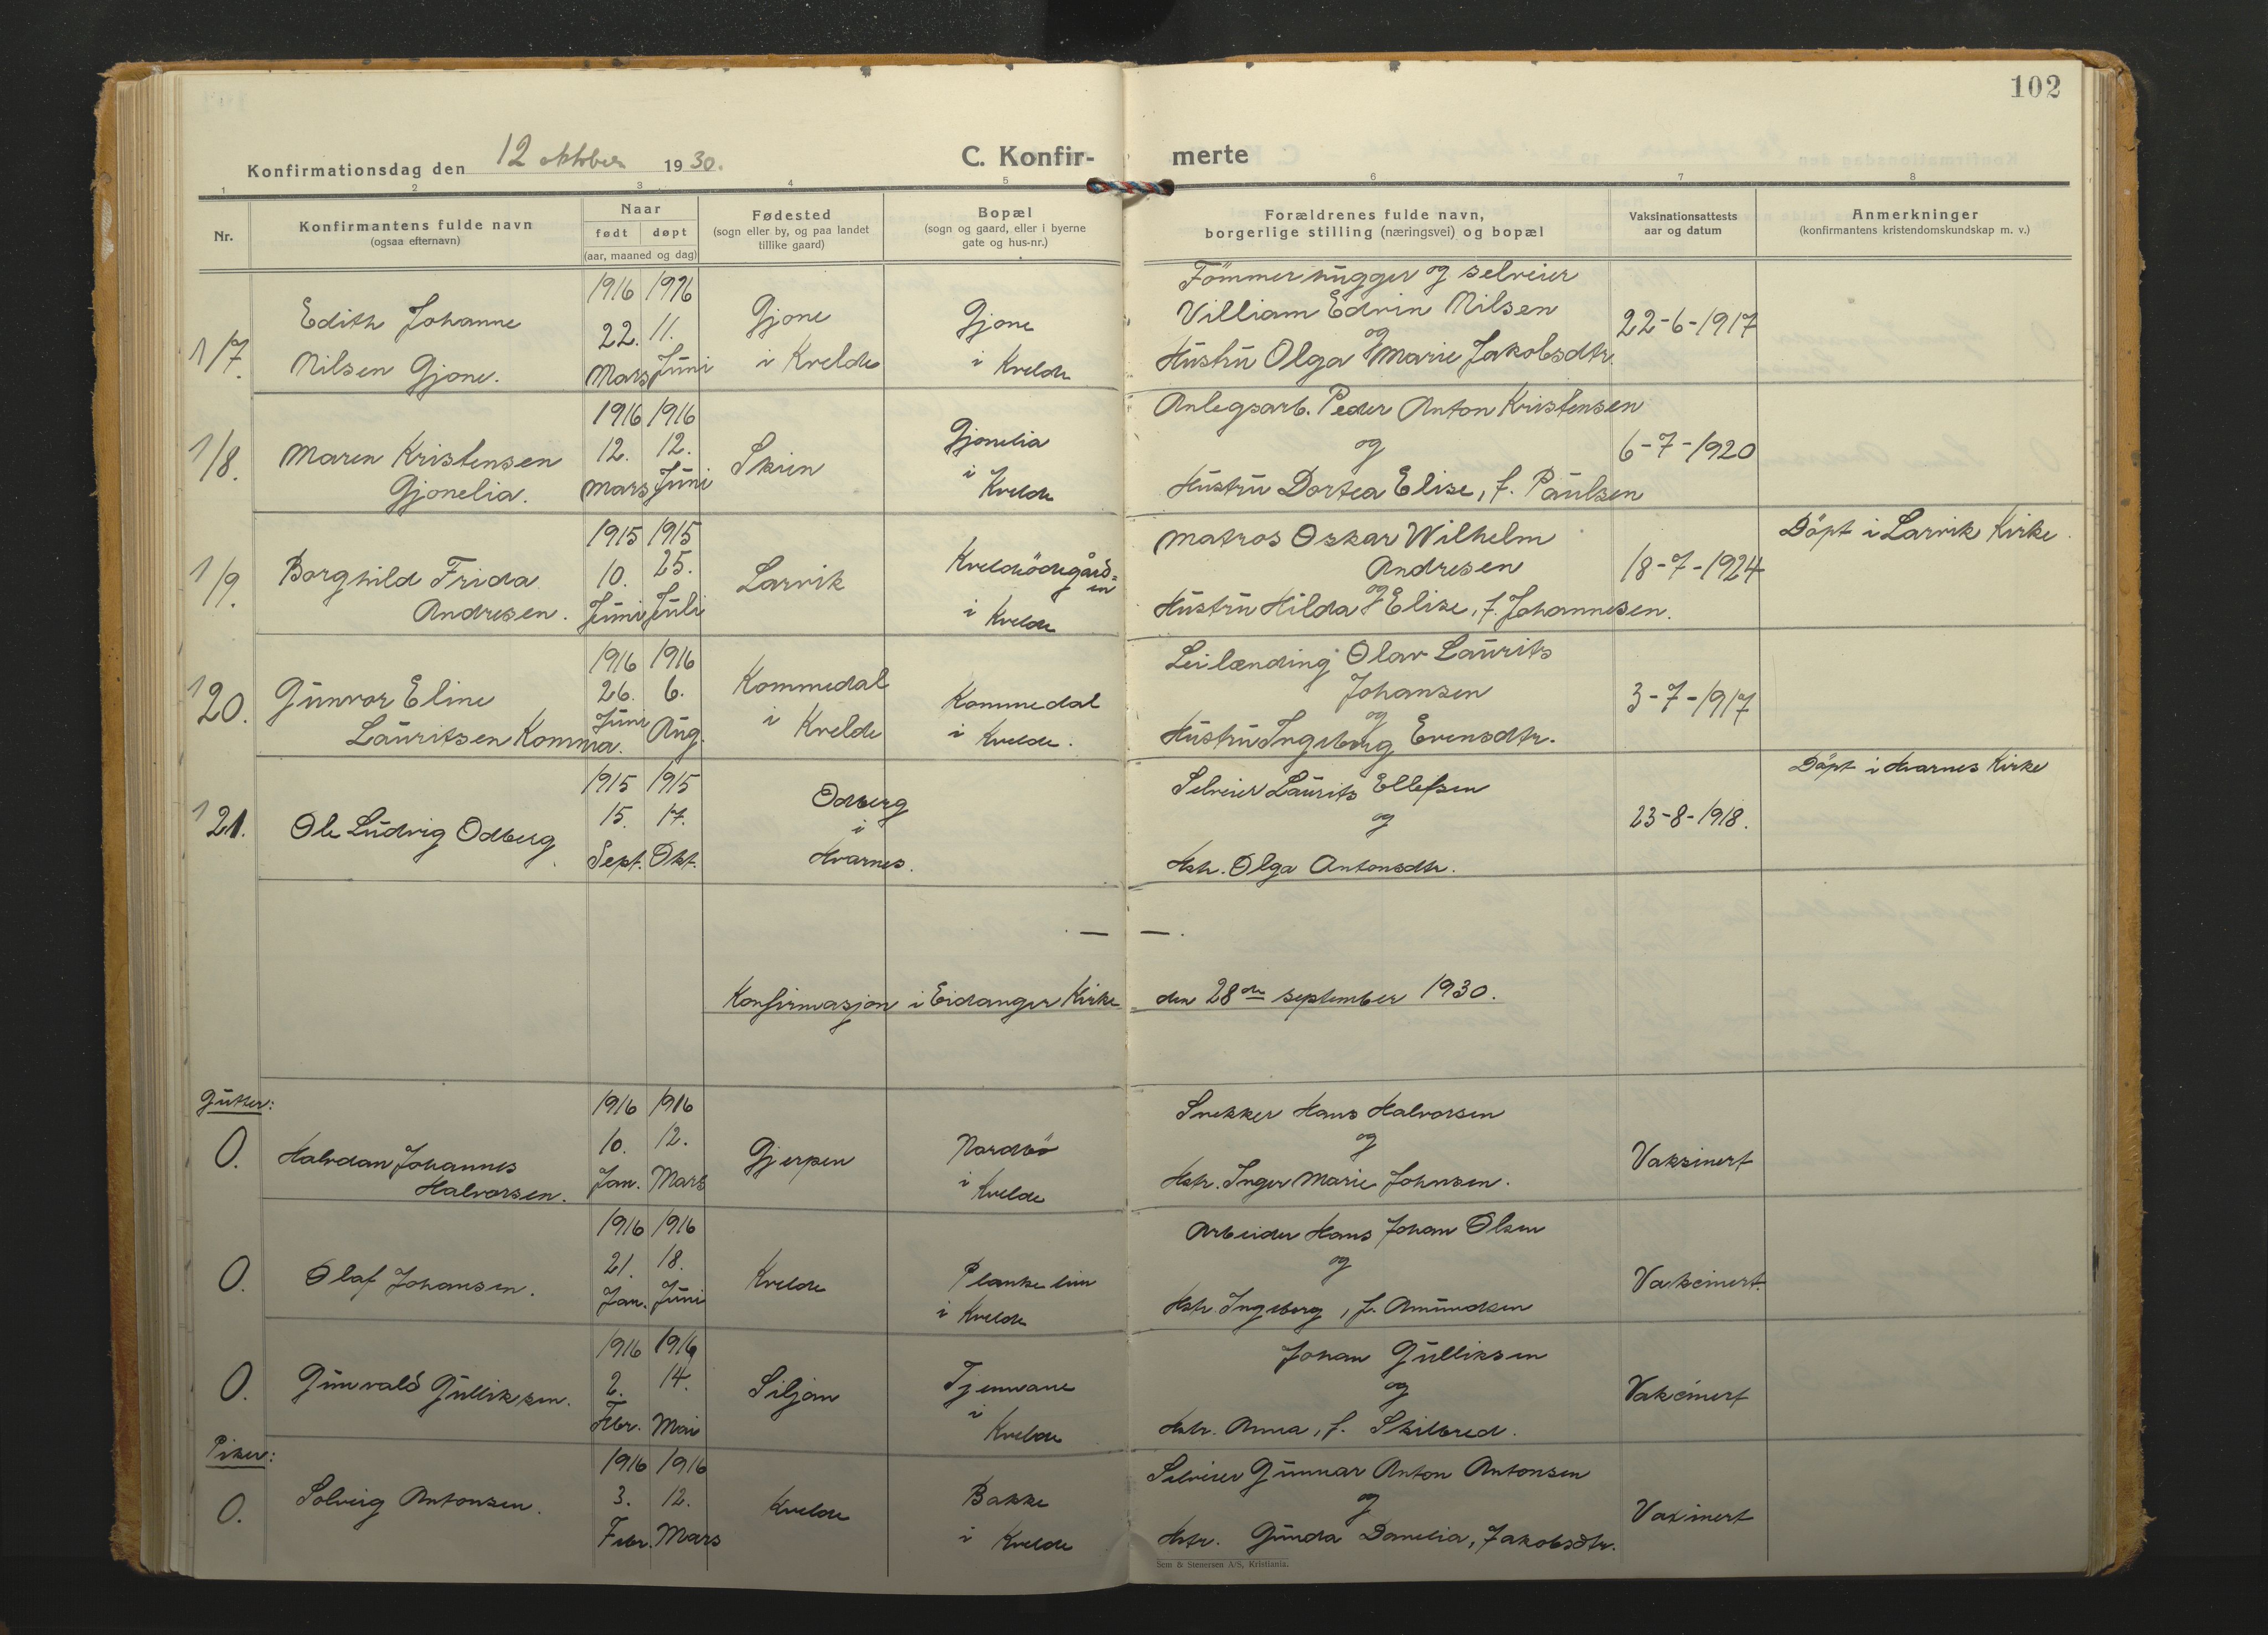 102
Konfirmationsdag den 12 oktober 1930.
C. Konfirmerte
1 2 3 4 5 6 7 8
Nr.
Konfirmantens fulde navn
(ogsaa efternavn)
Naar
født døpt
(aar, maaned og dag)
Fødested
(sogn eller by, og paa landet
tillike gaard)
Bopæl
(sogn og gaard, eller i byerne
gate og hus-nr.)
Forældrenes fulde navn,
borgerlige stilling (næringsvei) og bopæl
Vaksinationsattests
aar og datum
Anmerkninger
(konfirmantens kristendomskundskap m. v.)
17.
Edith Johanne
Nilsen Gjone.
1916 22. Mars
1916 11. Juni
Gjone
i Kvelde
Gjone
i Kvelde
Tömmerhugger og selveier
Villiam Edvin Nilsen
og
Hustru Olga Marie Jakobsdtr.
22-6-1917
18.
Maren Kristensen
Gjonelia.
1916 12. Mars
1916 12. Juni
Skien
Gjonelia
i
Kvelde
Anlegsarb. Peder Anton Kristensen
og
Hustru Dortea Elise, f. Paulsen
6-7-1920
19.
Borghild Frida
Andresen.
1915 10. Juni
1915 25. Juli
Larvik
Kveldeödegård=
en
i Kvelde
Matros Oskar Wilhelm
Andresen
og
Hustru Hilda Elise, f. Johannesen.
18-7-1924
Döpt i Larvik Kirke.
120.
Gunvor Eline
Lauritsen Komma.
1916 26. Juni
1916 6. Aug.
Kommedal
i Kvelde
Kommedal
i Kvelde.
Leilænding Olav Laurits
Johansen
og
Hustru Ingeborg Evensdtr.
3-7-1917
121.
Ole Ludvig Odberg.
1915 15. Sept.
1915 17. Okt.
Odberg
i
Hvarnes.
Selveier Laurits Ellefsen
og
Hstr. Olga Antonsdtr.
23-8-1918.
Döpt i Hvarnes Kirke
— —.
Konfirmasjon i Eidanger Kirke den 28de september 1930.
Gutter:
0.
Halvdan Johannes
Halvorsen.
1916 10. Jan.
1916 12. Mars
Gjerpen
Nordbö
i
Kvelde
Snekker Hans Halvorsen
og
Hstr. Inger Marie Johnsen.
Vaksinert
0.
Olaf Johansen.
1916 21. Jan.
1916 18. Juni
Kvelde
Plankelim
i Kvelde
Arbeider Hans Johan Olsen
og
Hstr. Ingeborg, f. Amundsen
Vaksinert.
0.
Gunvald Gulliksen.
1916 2. Febr.
1916 14. Mai
Siljan
Tjennane
i
Kvelde
Johan Gulliksen
og
Hstr. Anna, f. Skilbred.
Vaksinert
Piker:
0.
Solveig Antonsen.
1916 3. Febr.
1916 12. Mars
Kvelde
Bakke
i Kvelde
Selveier Gunnar Anton Antonsen
og
Hstr. Gunda Danelia, Jakobsdtr.
Vaxinert
Sem & Stenersen A/S, Kristiania.